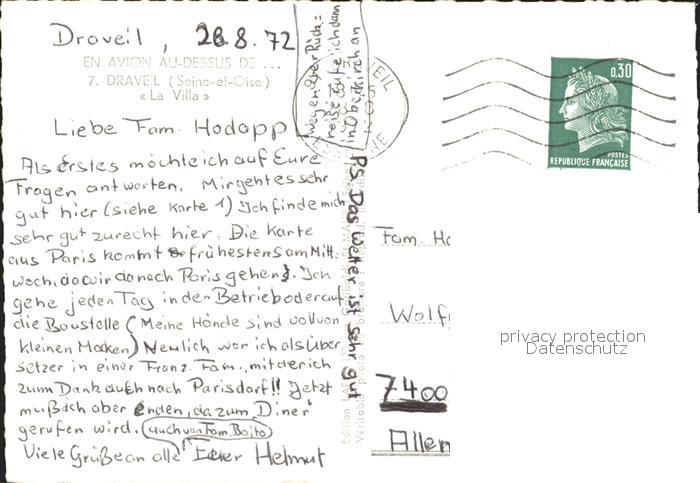 Draveil, 28.8.72
EN AVION AU-DESSUS DE ...
7. DRAVEIL (Seine-et-Oise)
« La Villa »
Liebe Fam. Hodapp!
Als erstes möchte ich auf Eure
Fragen antworten. Mir geht es sehr
gut hier (siehe Karte 1) Ich finde mich
sehr gut zurecht hier. Die Karte
aus Paris kommt frühestens am Mitt.
woch, da wir danach Paris gehen. Ich
gehe jeden Tag in den Betrieb oder auf
die Baustelle (Meine Hände sind voll von
kleinen Macken) Neulich war ich als Über
setzer in einer Franz. Fam., mit der ich
zum Dank auch nach Paris darf!! Jetzt
muß ich aber enden, da zum Diner
gerufen wird. (auch von Fam. Bojto)
Viele Grüße an alle Euer Helmut
Wegen der Rück=
reise rufe ich dann
in Oberkirch an
PS. Das Wetter ist sehr gut
0,30
POSTES
REPUBLIQUE FRANÇAISE
Fam. Ho
Wolf
7400
Allem
privacy protection
Datenschutz